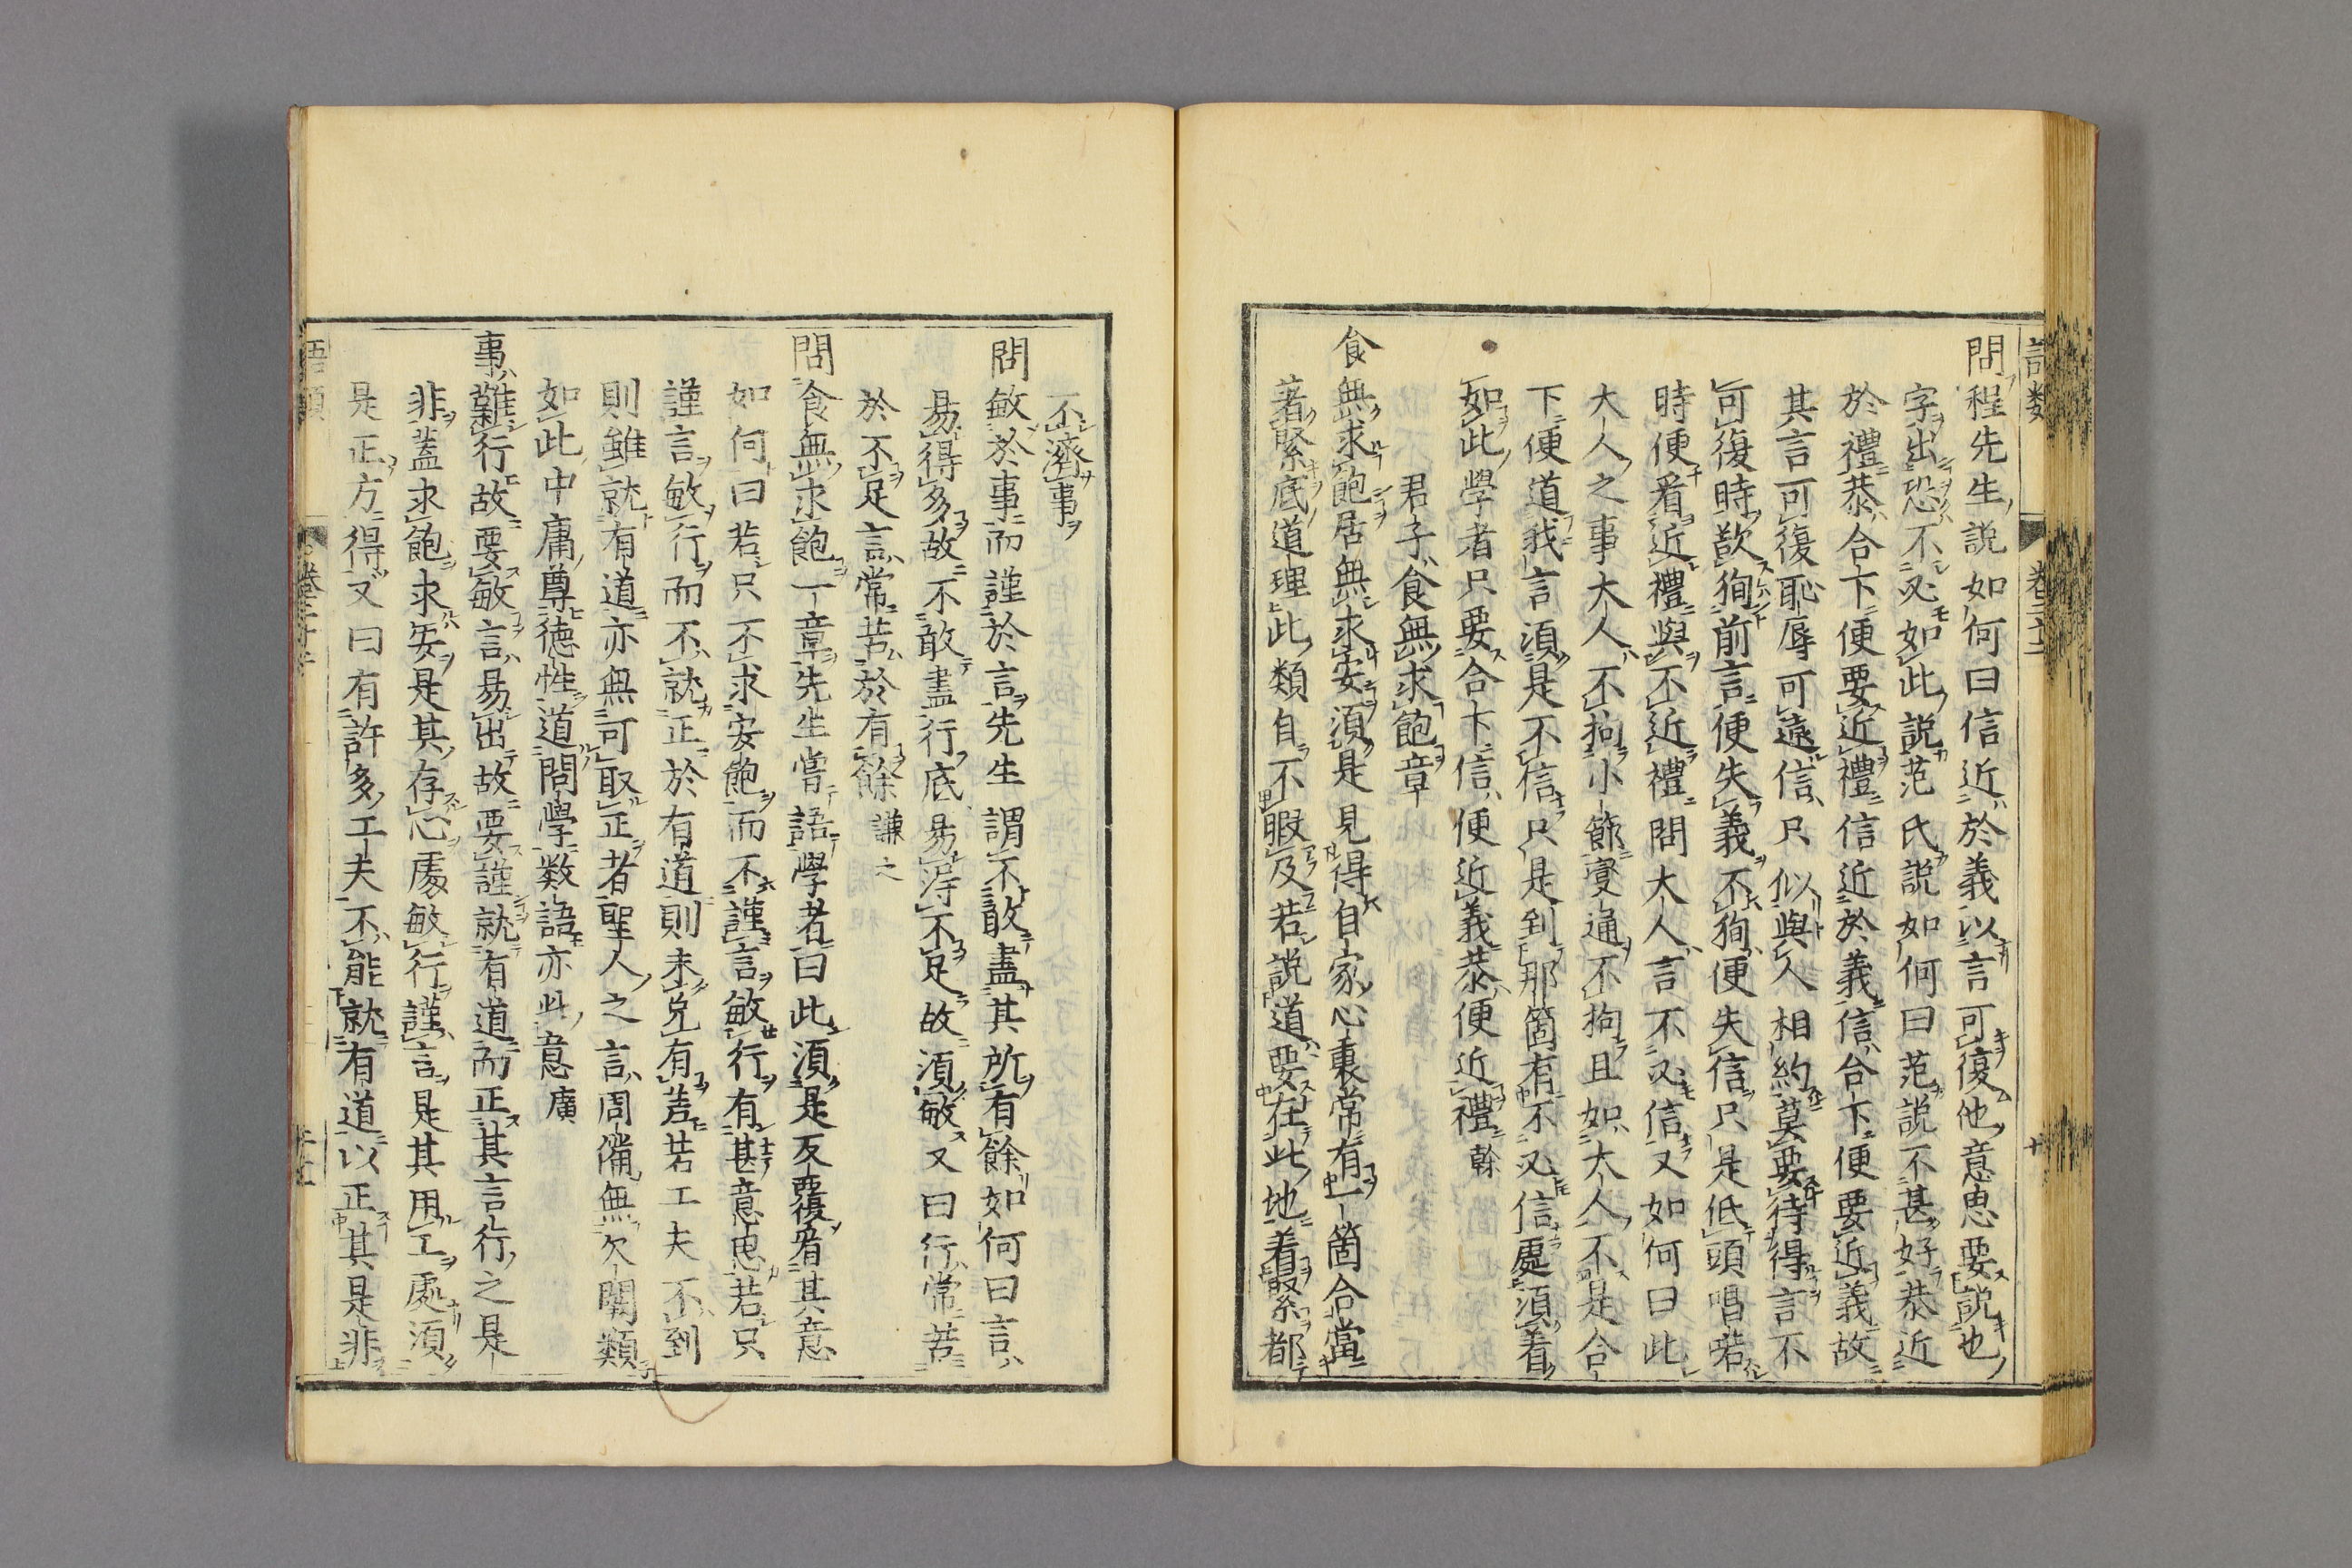 問程先生說如何曰信近於義以言可復他意思要說也
字出恐不必如此說范氏說如何曰范說不甚好恭近
於禮恭合下便要近禮信近於義信合下便要近義故
其言可復恥辱可遠信只似與人相約莫要待得言不
可復時歆狥前言便失義不狥便失信只是低頭唱喏
時便看近禮與不近禮問大人言不必信又如何曰此
大人之事大人不拘小節變通不拘且如大人不是合
下便道我言須是不信只是到那箇有不必信處須着
如此學者只要合下信便近義恭便近禮 榦
君子食無求飽章
食無求飽居無求安須是見得自家心裏常有一箇合當
著緊底道理此類自不暇及若說道要在此地着緊都
不濟事
問敏於事而謹於言先生謂不敢盡其所有餘如何曰言
易得多故不敢盡行底易得不足故須敏又曰行常苦
於不足言常苦於有餘 謙之
問食無求飽一章先生嘗語學者曰此須是反覆看其意
如何曰若只不求安飽而不謹言敏行有甚意思若只
謹言敏行而不就正於有道則未免有差若工夫不到
則雖就有道亦無可取正者聖人之言周備無欠闕類
如此中庸尊德性道問學數語亦此意 廣
事難行故要敏言易出故要謹就有道而正其言行之是
非蓋求飽求安是其存心處敏行謹言是其用工處須
是正方得又曰有許多工夫不能就有道以正其是非